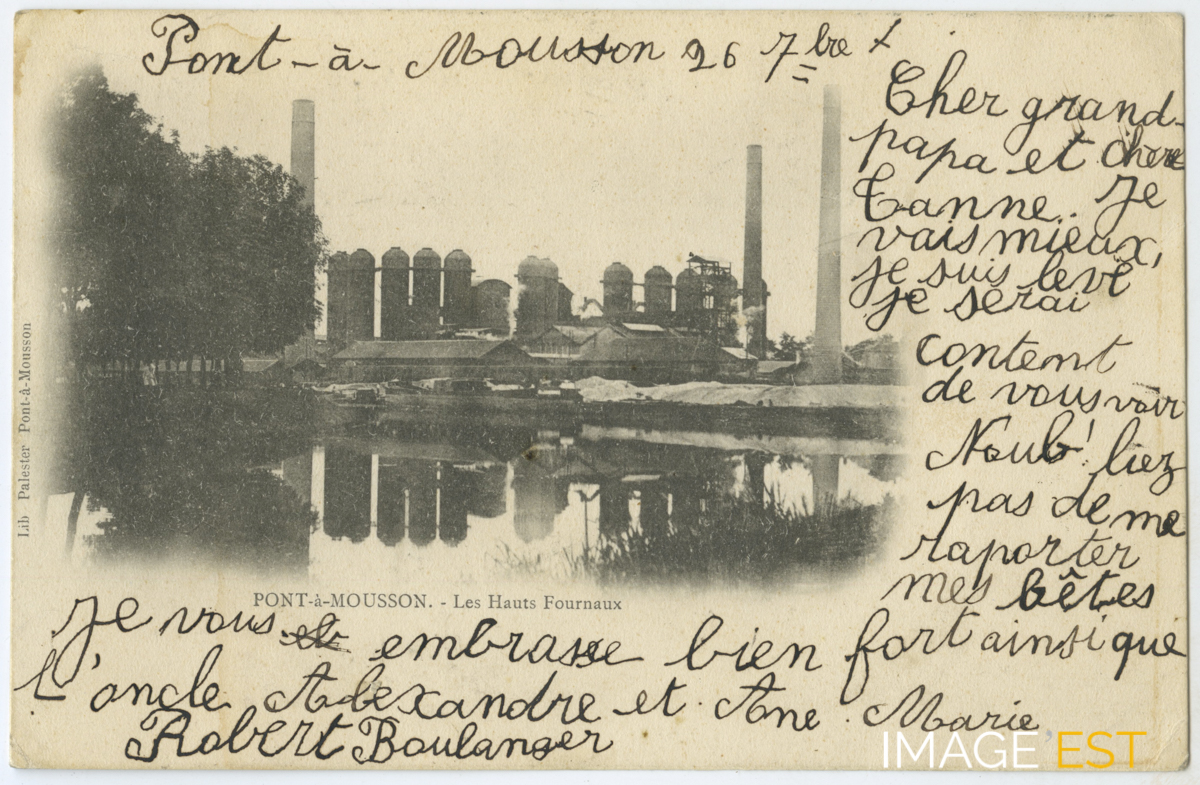 Pont-à-Mousson 26 7bre
Cher grand-
papa et chere
Tanne. Je
vais mieux,
je suis levé
je serai
content
de vous voir
N'oub'liez
pas de me
raporter
mes bêtes
Lib Palester Pont-à-Mousson
PONT-à-MOUSSON. - Les Hauts Fournaux
Je vous embrasse bien fort ainsi que
L'oncle Alexandre et Ane. Marie
Robert Boulanger
IMAGE EST